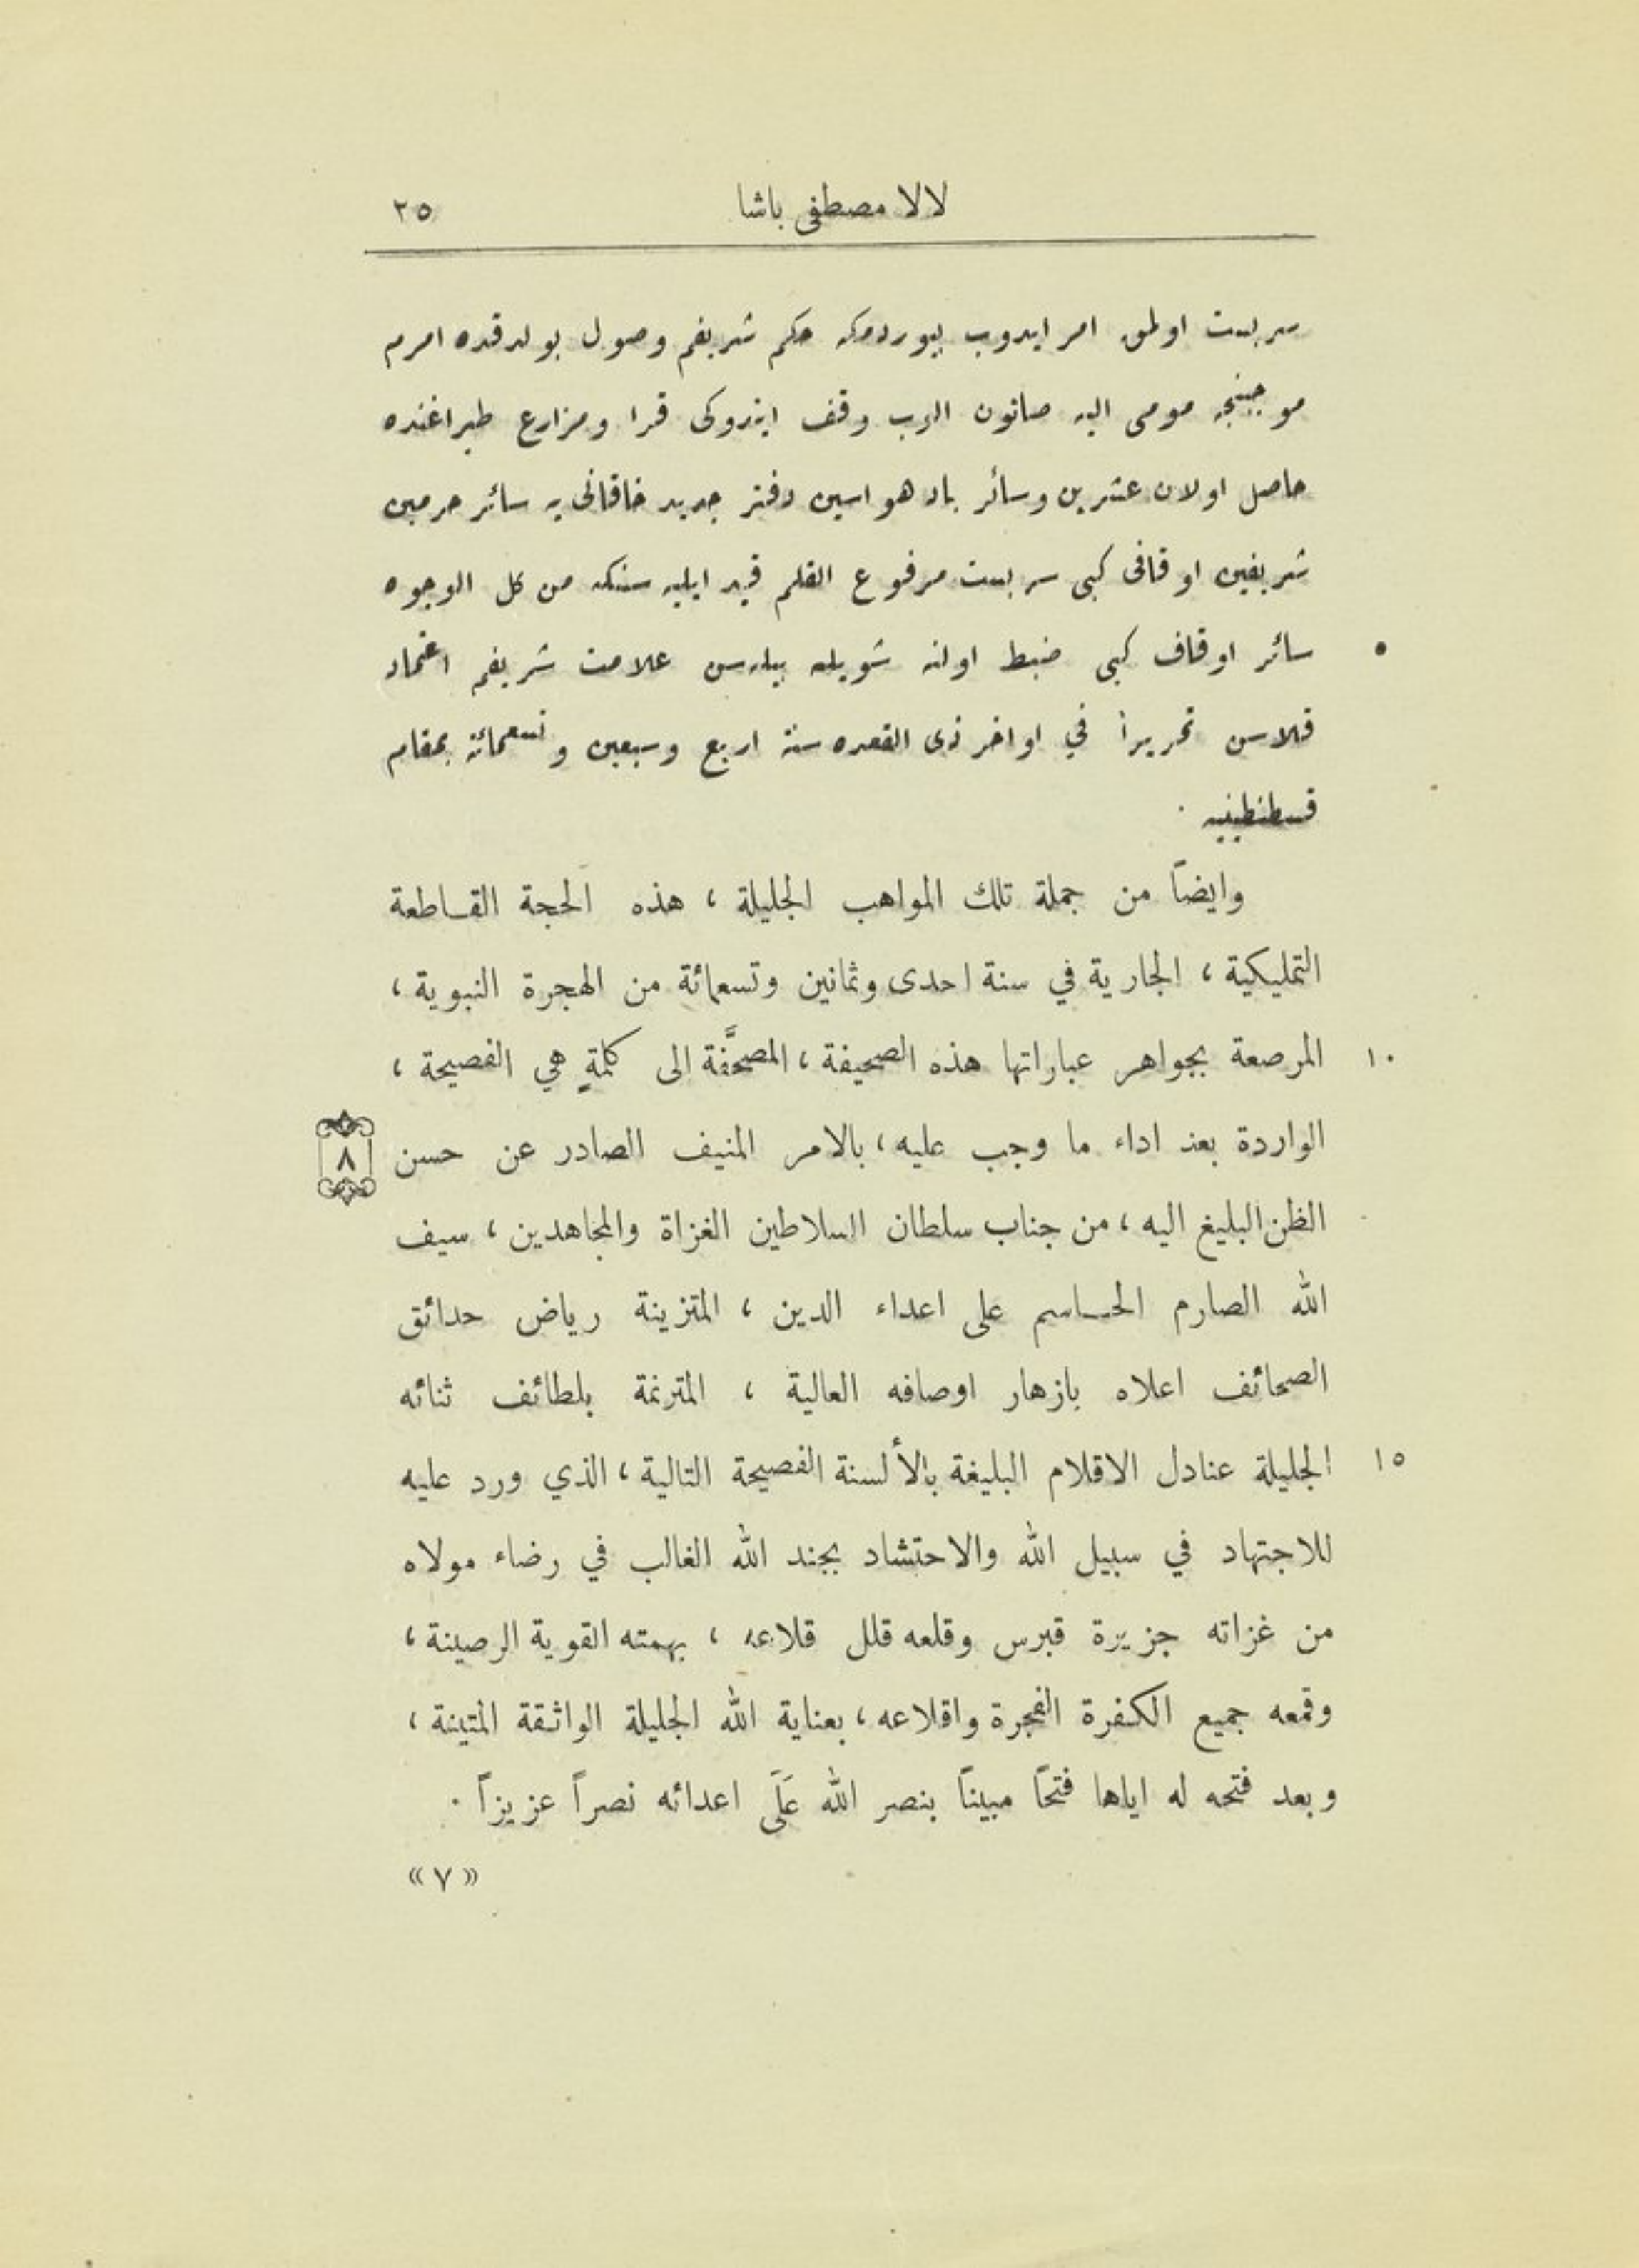 لالا مصطفى باشا ٢٥
سربست اولمق امر ايدوب بيوردمكه حكم شريفم وصول بولدقده امرم
موجبنجه مومى اليه صاتون الوب وقف ايتدوكى قرا ومزارع طپراغنده
حاصل اولان عشرين وسائر باد هواسين دفتر جديد خاقانى يه سائر حرمين
شريفين اوقافى كبى سربست مرفوع القلم قيد ايليه سنكه من كل الوجوه
٥ سائر اوقاف كبى ضبط اولنه شويله بيله سن علامت شريفم اعتماد
قيلاسن تحريراً في اواخر ذى القعده سنة اربع وسبعين وتسعمائة بمقام
قسطنطينيه .
وايضاً من جملة تلك المواهب الجليلة ، هذه الحجة القاطعة
التمليكية ، الجارية في سنة احدى وثمانين وتسعمائة من الهجرة النبوية ،
١٠ المرصعة بجواهر عباراتها هذه الصحيفة ، المصحَّفة الى كلمةٍ هي الفصيحة ،
الواردة بعد اداء ما وجب عليه ، بالامر المنيف الصادر عن حسن ٨
الظن البليغ اليه ، من جناب سلطان السلاطين الغزاة والمجاهدين ، سيف
الله الصارم الحاسم على اعداء الدين ، المتزينة رياض حدائق
الصحائف اعلاه بازهار اوصافه العالية ، المترنمة بلطائف ثنائه
١٥ الجليلة عنادل الاقلام البليغة بالألسنة الفصيحة التالية ، الذي ورد عليه
للاجتهاد في سبيل الله والاحتشاد بجند الله الغالب في رضاء مولاه
من غزاته جزيرة قبرس وقلعه قلل قلاعه ، بهمته القوية الرصينة ،
وقمعه جميع الكفرة الفجرة واقلاعه ، بعناية الله الجليلة الواثقة المتينة ،
وبعد فتحه له اياها فتحاً مبيناً بنصر الله عَلَى اعدائه نصراً عزيزاً .
«٧»